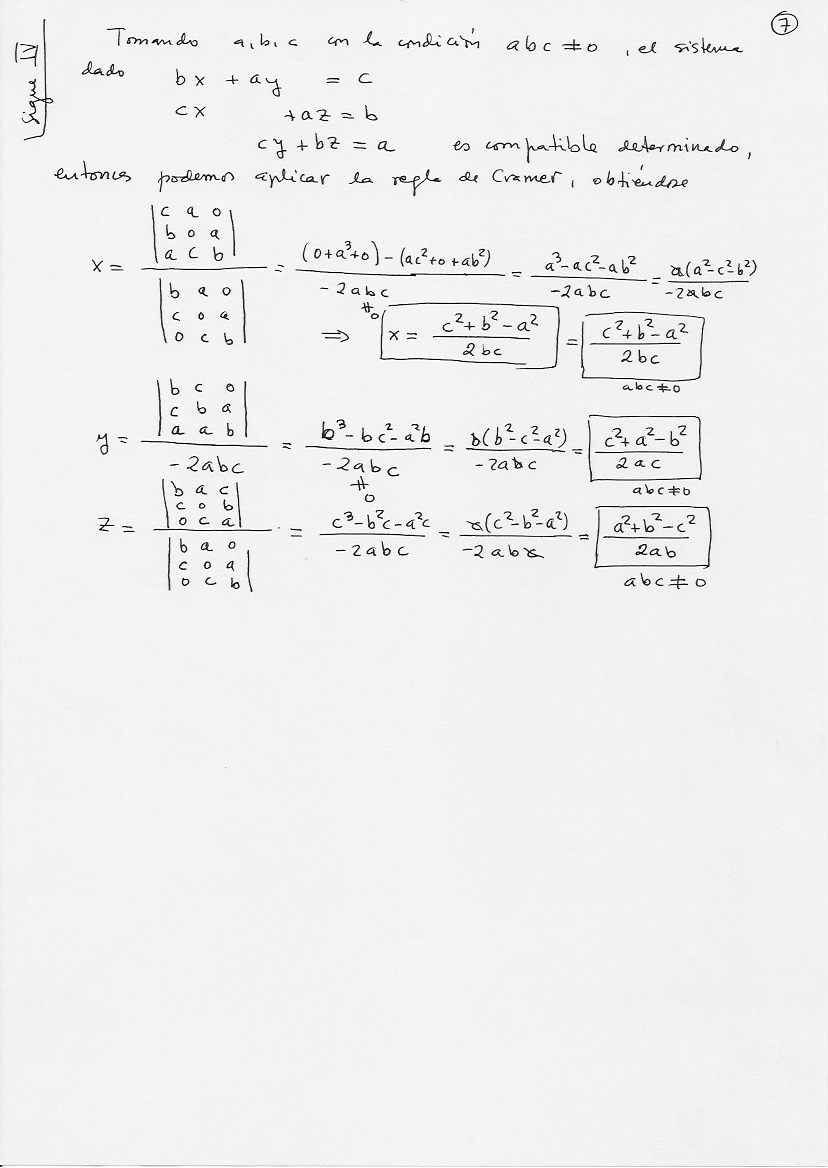 7
Sigue IV
Tomando a, b, c con la condición abc ≠ 0, el sistema
dado bx + ay = c
cx + az = b
cy + bz = a es compatible determinado,
entonces podemos aplicar la regla de Cramer, obtiéndose
x = |c a 0; b 0 a; a c b| / |b a 0; c 0 a; 0 c b| = ((0+a³+0) - (ac²+0+ab²)) / (-2abc ≠ 0) = (a³-ac²-ab²) / (-2abc) = a(a²-c²-b²) / (-2abc)
⇒ x = (c²+b²-a²) / (2bc) = (c²+b²-a²) / (2bc) abc≠0
y = |b c 0; c b a; a a b| / (-2abc) = (b³-bc²-a²b) / (-2abc ≠ 0) = b(b²-c²-a²) / (-2abc) = (c²+a²-b²) / (2ac) abc≠0
z = |b a c; c 0 b; 0 c a| / |b a 0; c 0 a; 0 c b| = (c³-b²c-a²c) / (-2abc) = c(c²-b²-a²) / (-2abc) = (a²+b²-c²) / (2ab) abc≠0